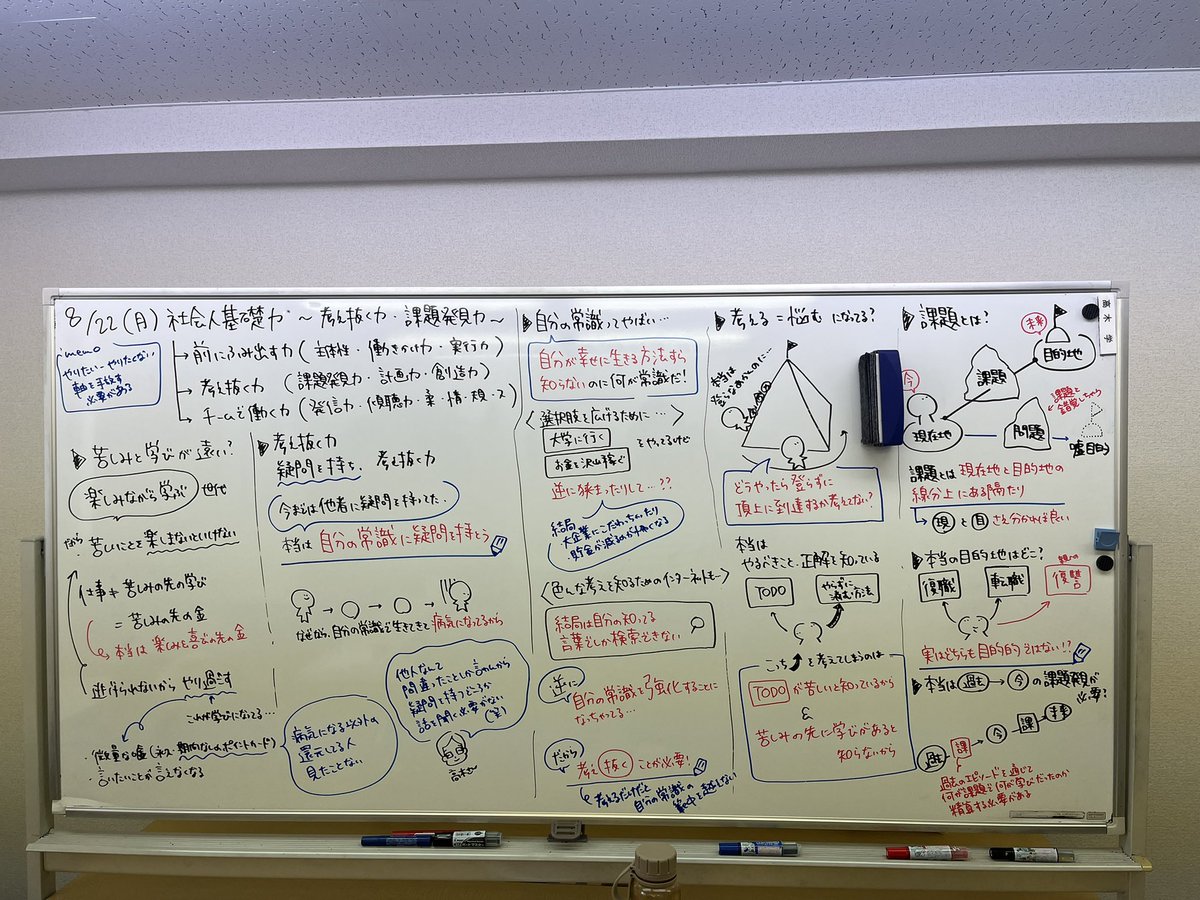 8/22(月) 社会人基礎力 〜 考え抜く力・課題発見力〜
memo
やりたい−やりたくない
軸を手放す
必要がある
→前にふみ出す力(主体性・働きかけ力・実行力)
→考え抜く力 (課題発見力・計画力・創造力)
→チームで働く力(発信力・傾聴力・柔・情・規・ス)
▶苦しみと学びが遠い?
楽しみながら学ぶ 世代
なら 苦しいことを楽しまないといけない
仕事≠苦しみの先の学び
=苦しみの先の金
→本当は楽しみと喜びの先の金
逃げられないから やり過ごす
これが学びになってる…
・言いたいことが言えなくなる
▶考え抜く力
疑問を持ち、考え抜く力
今までは他者に疑問を持ってた。
本当は 自分の常識に疑問を持とう
なぜなら、自分の常識で生きてきて病気になってるから
病気になる以外の
還元してる人
見たことない
他人なんて
間違ったことしか言わんから
疑問を持つどころか
話を聞く必要がない
(笑)
▶自分の常識ってやばい…
自分が幸せに生きる方法すら
知らないのに何が常識だ!
〈選択肢を広げるために…〉
大学に行く
お金を沢山稼ぐ
をやってるけど
逆に狭まったりして…??
結局
大企業にこだわっちゃったり
貯金が減るのが怖くなる
〈色んな考えを知るためのインターネットも〉
結局は自分の知ってる
言葉でしか検索できない
逆に
自分の常識を強化することに
なっちゃてる…
だから
考え抜くことが必要!
→考えるだけだと
自分の常識の
範中を越しない
▶考える=悩む になってる?
本当は
登らなあかんのに…
どうやったら登らずに
頂上に到達するか考えてない?
本当は
やるべきこと、正解を知っている
TODO
やらずに
済む方法
こっち を考えてしまうのは
TODO が苦しいと知っているから
&
苦しみの先に学びがあると
知らないから
▶課題とは?
未来
目的地
課題
今
現在地
問題
課題と
錯覚しちゃう
嘘目的
課題とは現在地と目的地の
線分上にある隔たり
→現と目さえ分かれば良い
▶本当の目的地はどこ?
復職
転職
復讐
実はどちらも目的的ではない!?
▶本当は過去→今の課題発見が
必要?
過去
課
今
課
未来
過去のエピソードを通じて
何が課題で何が学びだったのか
精算する必要がある